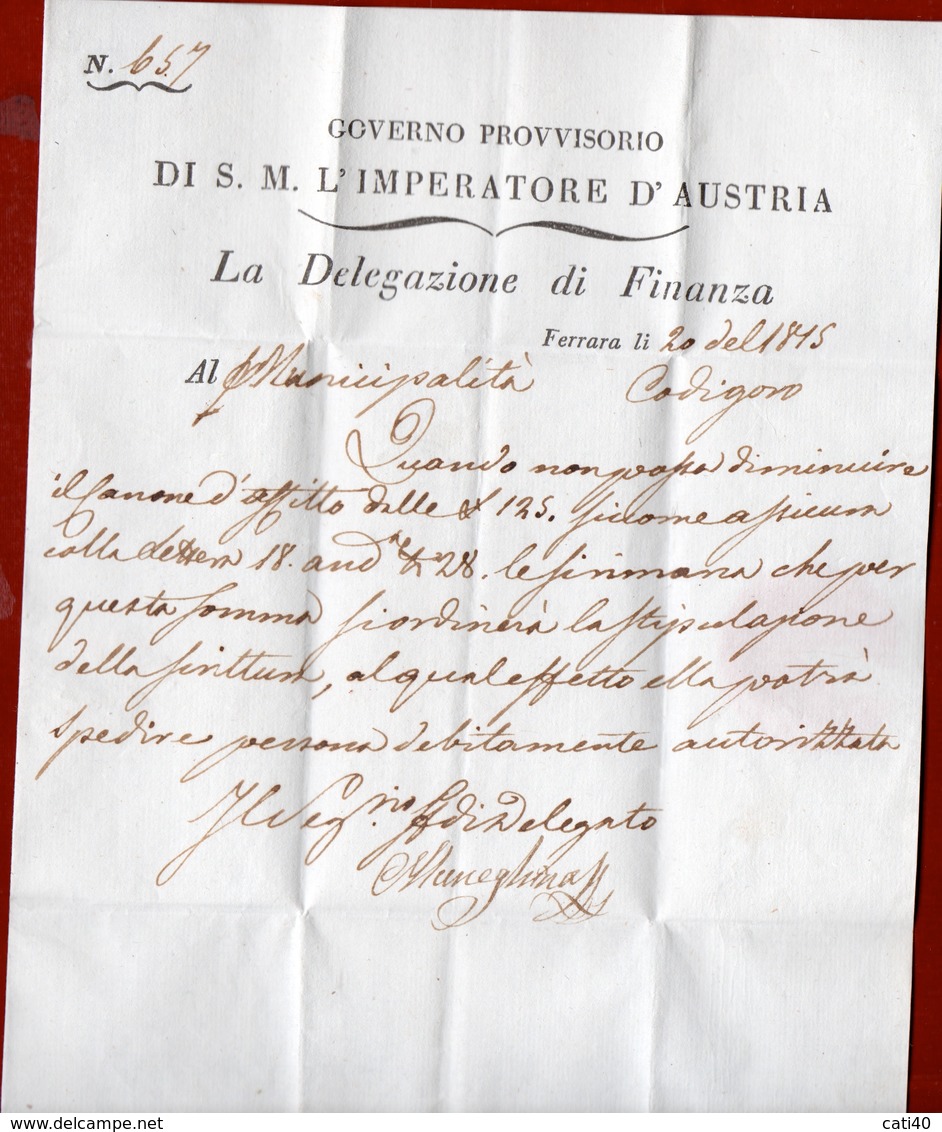 N. 657
GOVERNO PROVVISORIO
DI S. M. L'IMPERATORE D'AUSTRIA
La Delegazione di Finanza
Ferrara li 20 del 1815
Al Municipalità Codigoro
Quando non possa diminuire
il Canone d'affitto dalle £ 125. siccome assicura
colla Lettera 18. and.e N 28. le si rimarca che per
questa somma si ordinerà la stipulazione
della scrittura, al qual effetto ella potrà
spedire persona debitamente autorizzata
Il Seg.rio ff di Delegato
cati40